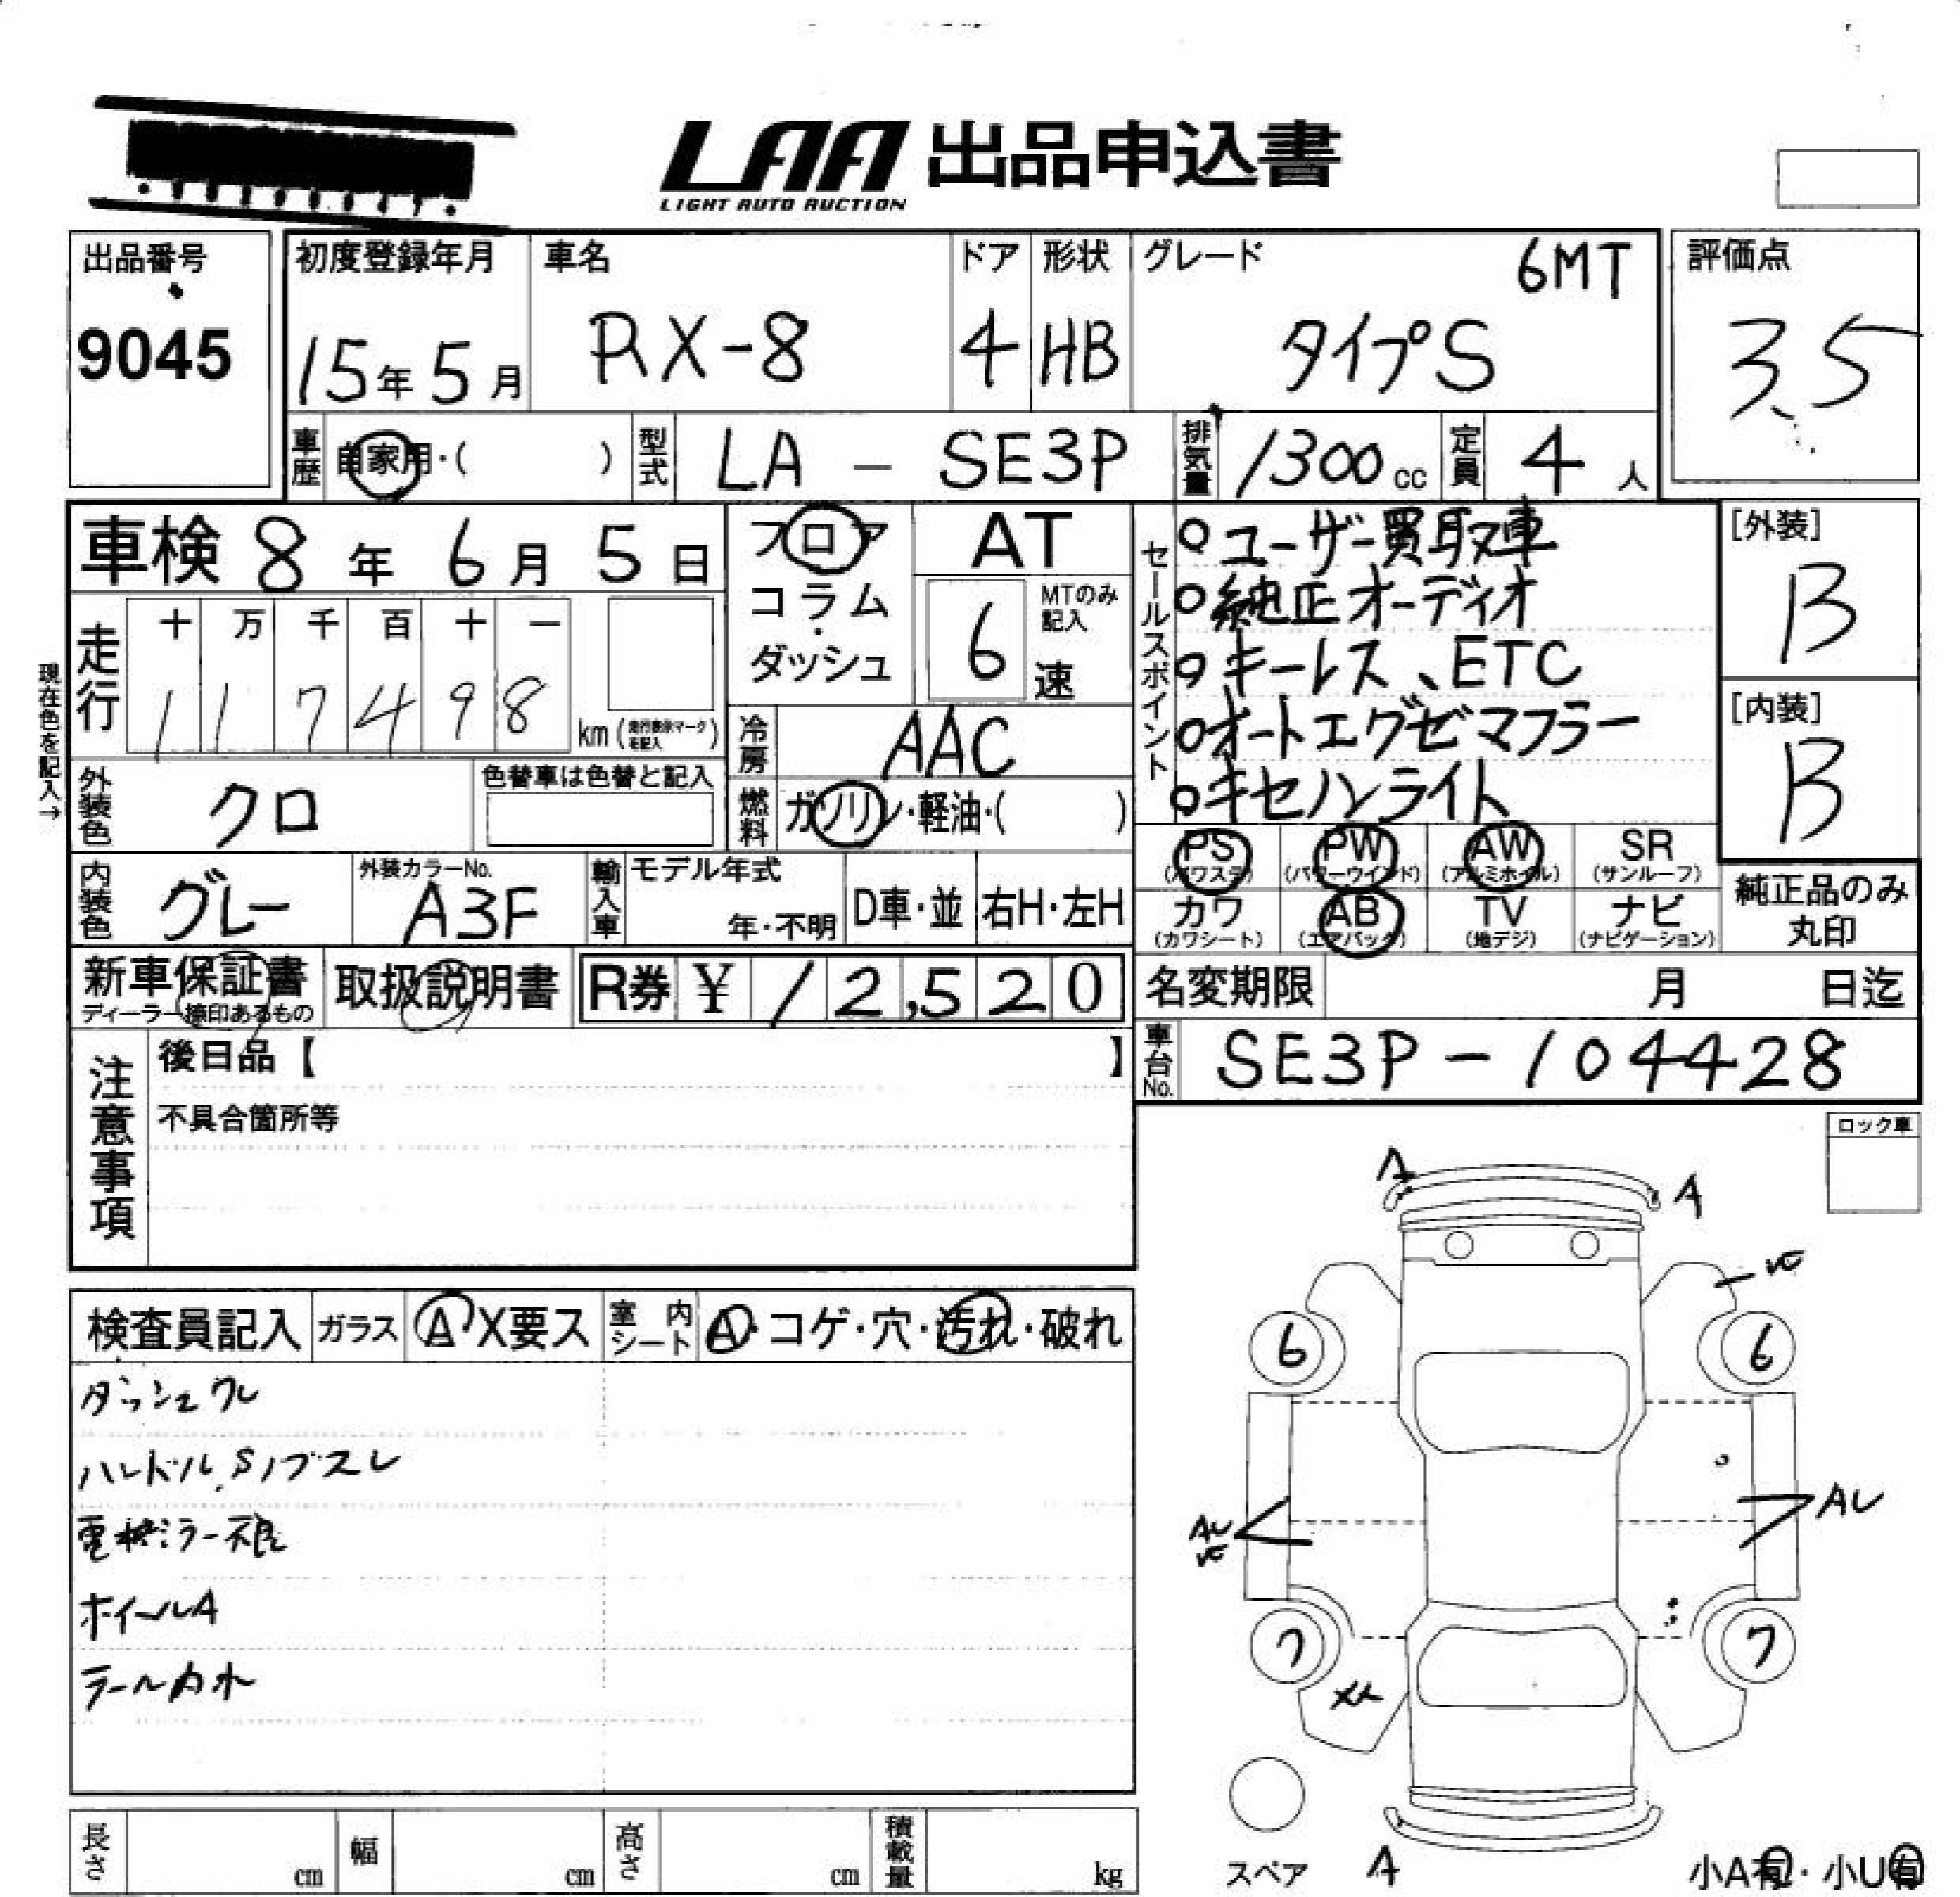 LAA 出品申込書
LIGHT AUTO AUCTION
出品番号
9045
初度登録年月
15年5月
車名
RX-8
ドア
4
形状
HB
グレード
6MT
タイプS
評価点
3.5
車歴
自家用・( )
型式
LA - SE3P
排気量
1300cc
定員
4人
車検 8年 6月 5日
走行
十 万 千 百 十 一
1 1 7 4 9 8
km(走行表示マークを記入)
現在色を記入→
外装色
クロ
色替車は色替と記入
フロア
コラム
・
ダッシュ
AT
6
MTのみ記入
速
冷房
AAC
燃料
ガソリン・軽油・( )
セールスポイント
○ユーザー買取車
○純正オーディオ
○キーレス、ETC
○オートエグゼマフラー
○キセノンライト
[外装]
B
[内装]
B
PS
(パワステ)
PW
(パワーウインド)
AW
(アルミホイル)
SR
(サンルーフ)
カワ
(カワシート)
AB
(エアバック)
TV
(地デジ)
ナビ
(ナビゲーション)
純正品のみ
丸印
内装色
グレー
外装カラーNo.
A3F
輸入車
モデル年式
年・不明
D車・並
右H・左H
新車保証書
ディーラー捺印あるもの
取扱説明書
R券 ¥ 12,520
名変期限 月 日迄
車台No.
SE3P-104428
注意事項
後日品【 】
不具合箇所等
ロック車
検査員記入
ガラス
A X要ス
室内シート
A・コゲ・穴・汚れ・破れ
ハンドル、Sノブスレ
ホイールA
A
A
6
6
AU
AU
7
7
A
スペア
小A有・小U有
長さ cm
幅 cm
高さ cm
積載量 kg